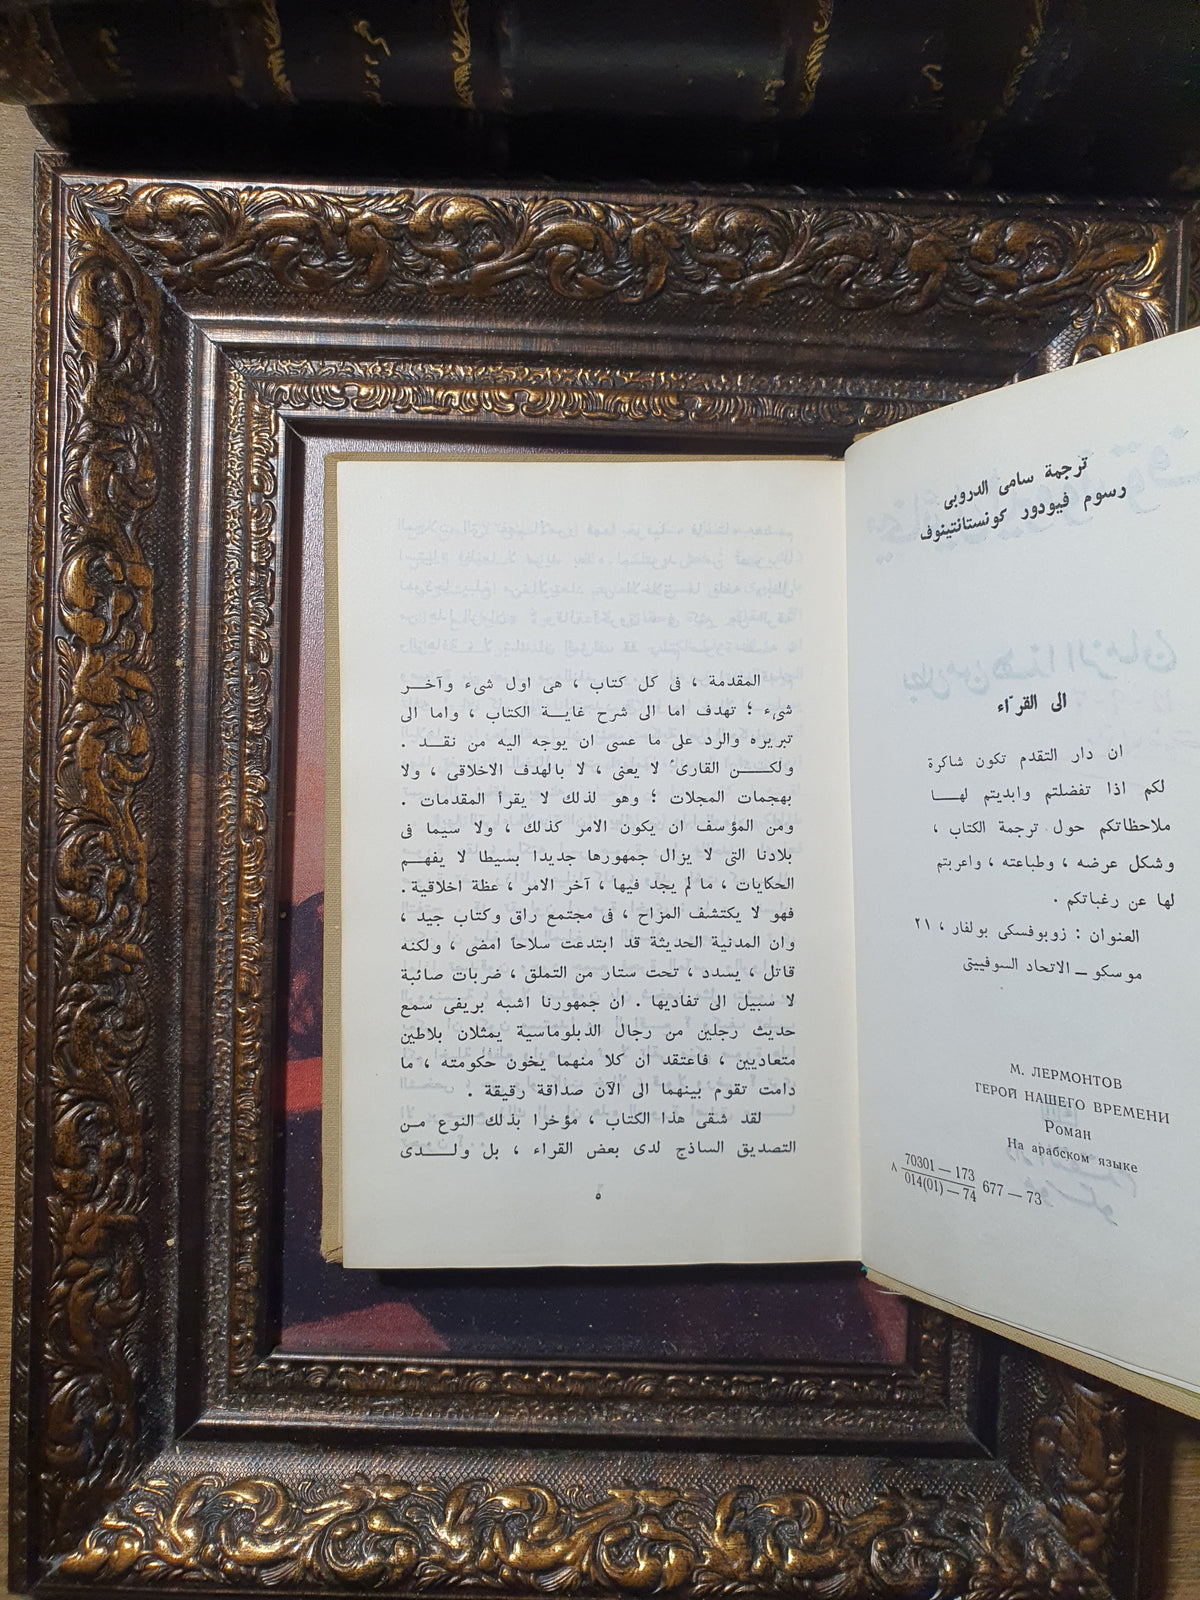 ترجمة سامى الدروبى
رسوم فيودور كونستانتينوف
الى القرّاء
ان دار التقدم تكون شاكرة
لكم اذا تفضلتم وابديتم لهــا
ملاحظاتكم حول ترجمة الكتاب ،
وشكل عرضه ، وطباعته ، واعربتم
لها عن رغباتكم .
العنوان : زوبوفسكى بولفار ، ٢١
موسكو ــ الاتحاد السوفييتى
М. ЛЕРМОНТОВ
ГЕРОЙ НАШЕГО ВРЕМЕНИ
Роман
На арабском языке
Л 70301 — 173
014(01) — 74 677 — 73
المقدمة ، فى كل كتاب ، هى اول شىء وآخـر
شىء ؛ تهدف اما الى شرح غايـة الكتاب ، واما الى
تبريره والرد على ما عسى ان يوجه اليه من نقـد .
ولكـــن القارئ لا يعنى ، لا بالهدف الاخلاقى ، ولا
بهجمات المجلات ؛ وهو لذلك لا يقرأ المقدمات .
ومن المؤسف ان يكون الامر كذلك ، ولا سيما فى
بلادنا التى لا يزال جمهورها جديدا بسيطا لا يفهـم
الحكايات ، ما لم يجد فيها ، آخر الامر ، عظة اخلاقية .
فهو لا يكتشف المزاح ، فى مجتمع راق وكتاب جيد ،
وان المدنية الحديثة قد ابتدعت سلاحاً امضى ، ولكنه
قاتل ، يسدد ، تحت ستار من التملق ، ضربات صائبة
لا سبيل الى تفاديها . ان جمهورنا اشبه بريفى سمع
حديث رجلين من رجال الدبلوماسية يمثلان بلاطين
متعاديين ، فاعتقد ان كلا منهما يخون حكومته ، ما
دامت تقوم بينهما الى الآن صداقة رقيقة .
لقد شقى هذا الكتاب ، مؤخرا بذلك النوع مـن
التصديق الساذج لدى بعض القراء ، بل ولــــدى
٥